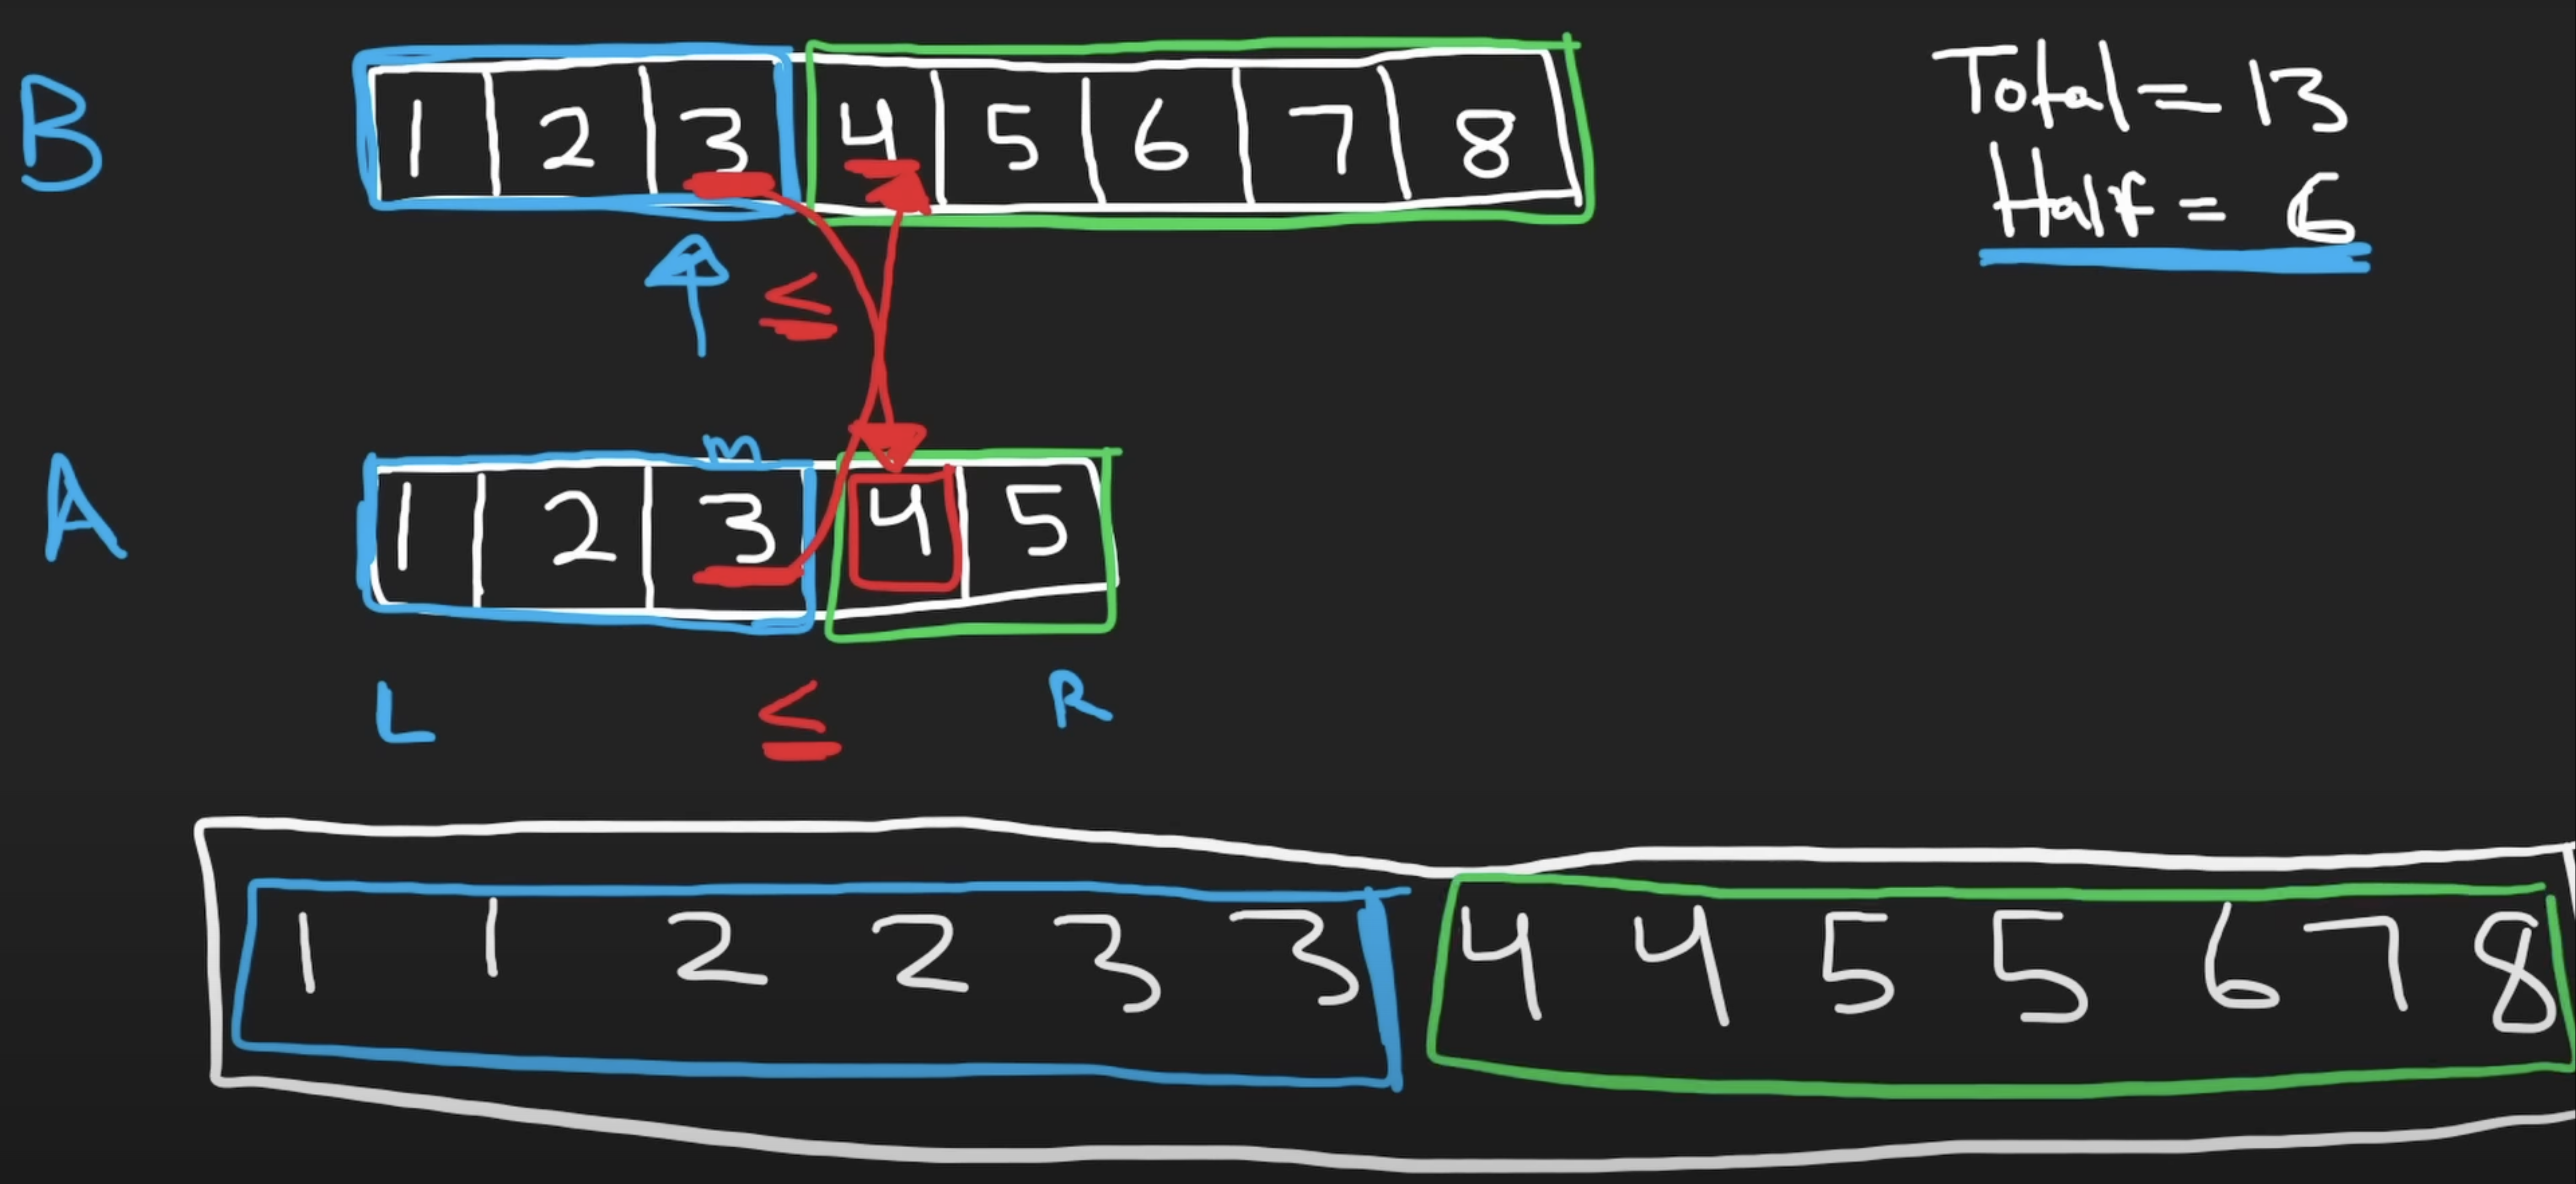 B
1 2 3 4 5 6 7 8
Total = 13
Half = 6
≤
m
A
1 2 3 4 5
L ≤ R
1 1 2 2 3 3 4 4 5 5 6 7 8